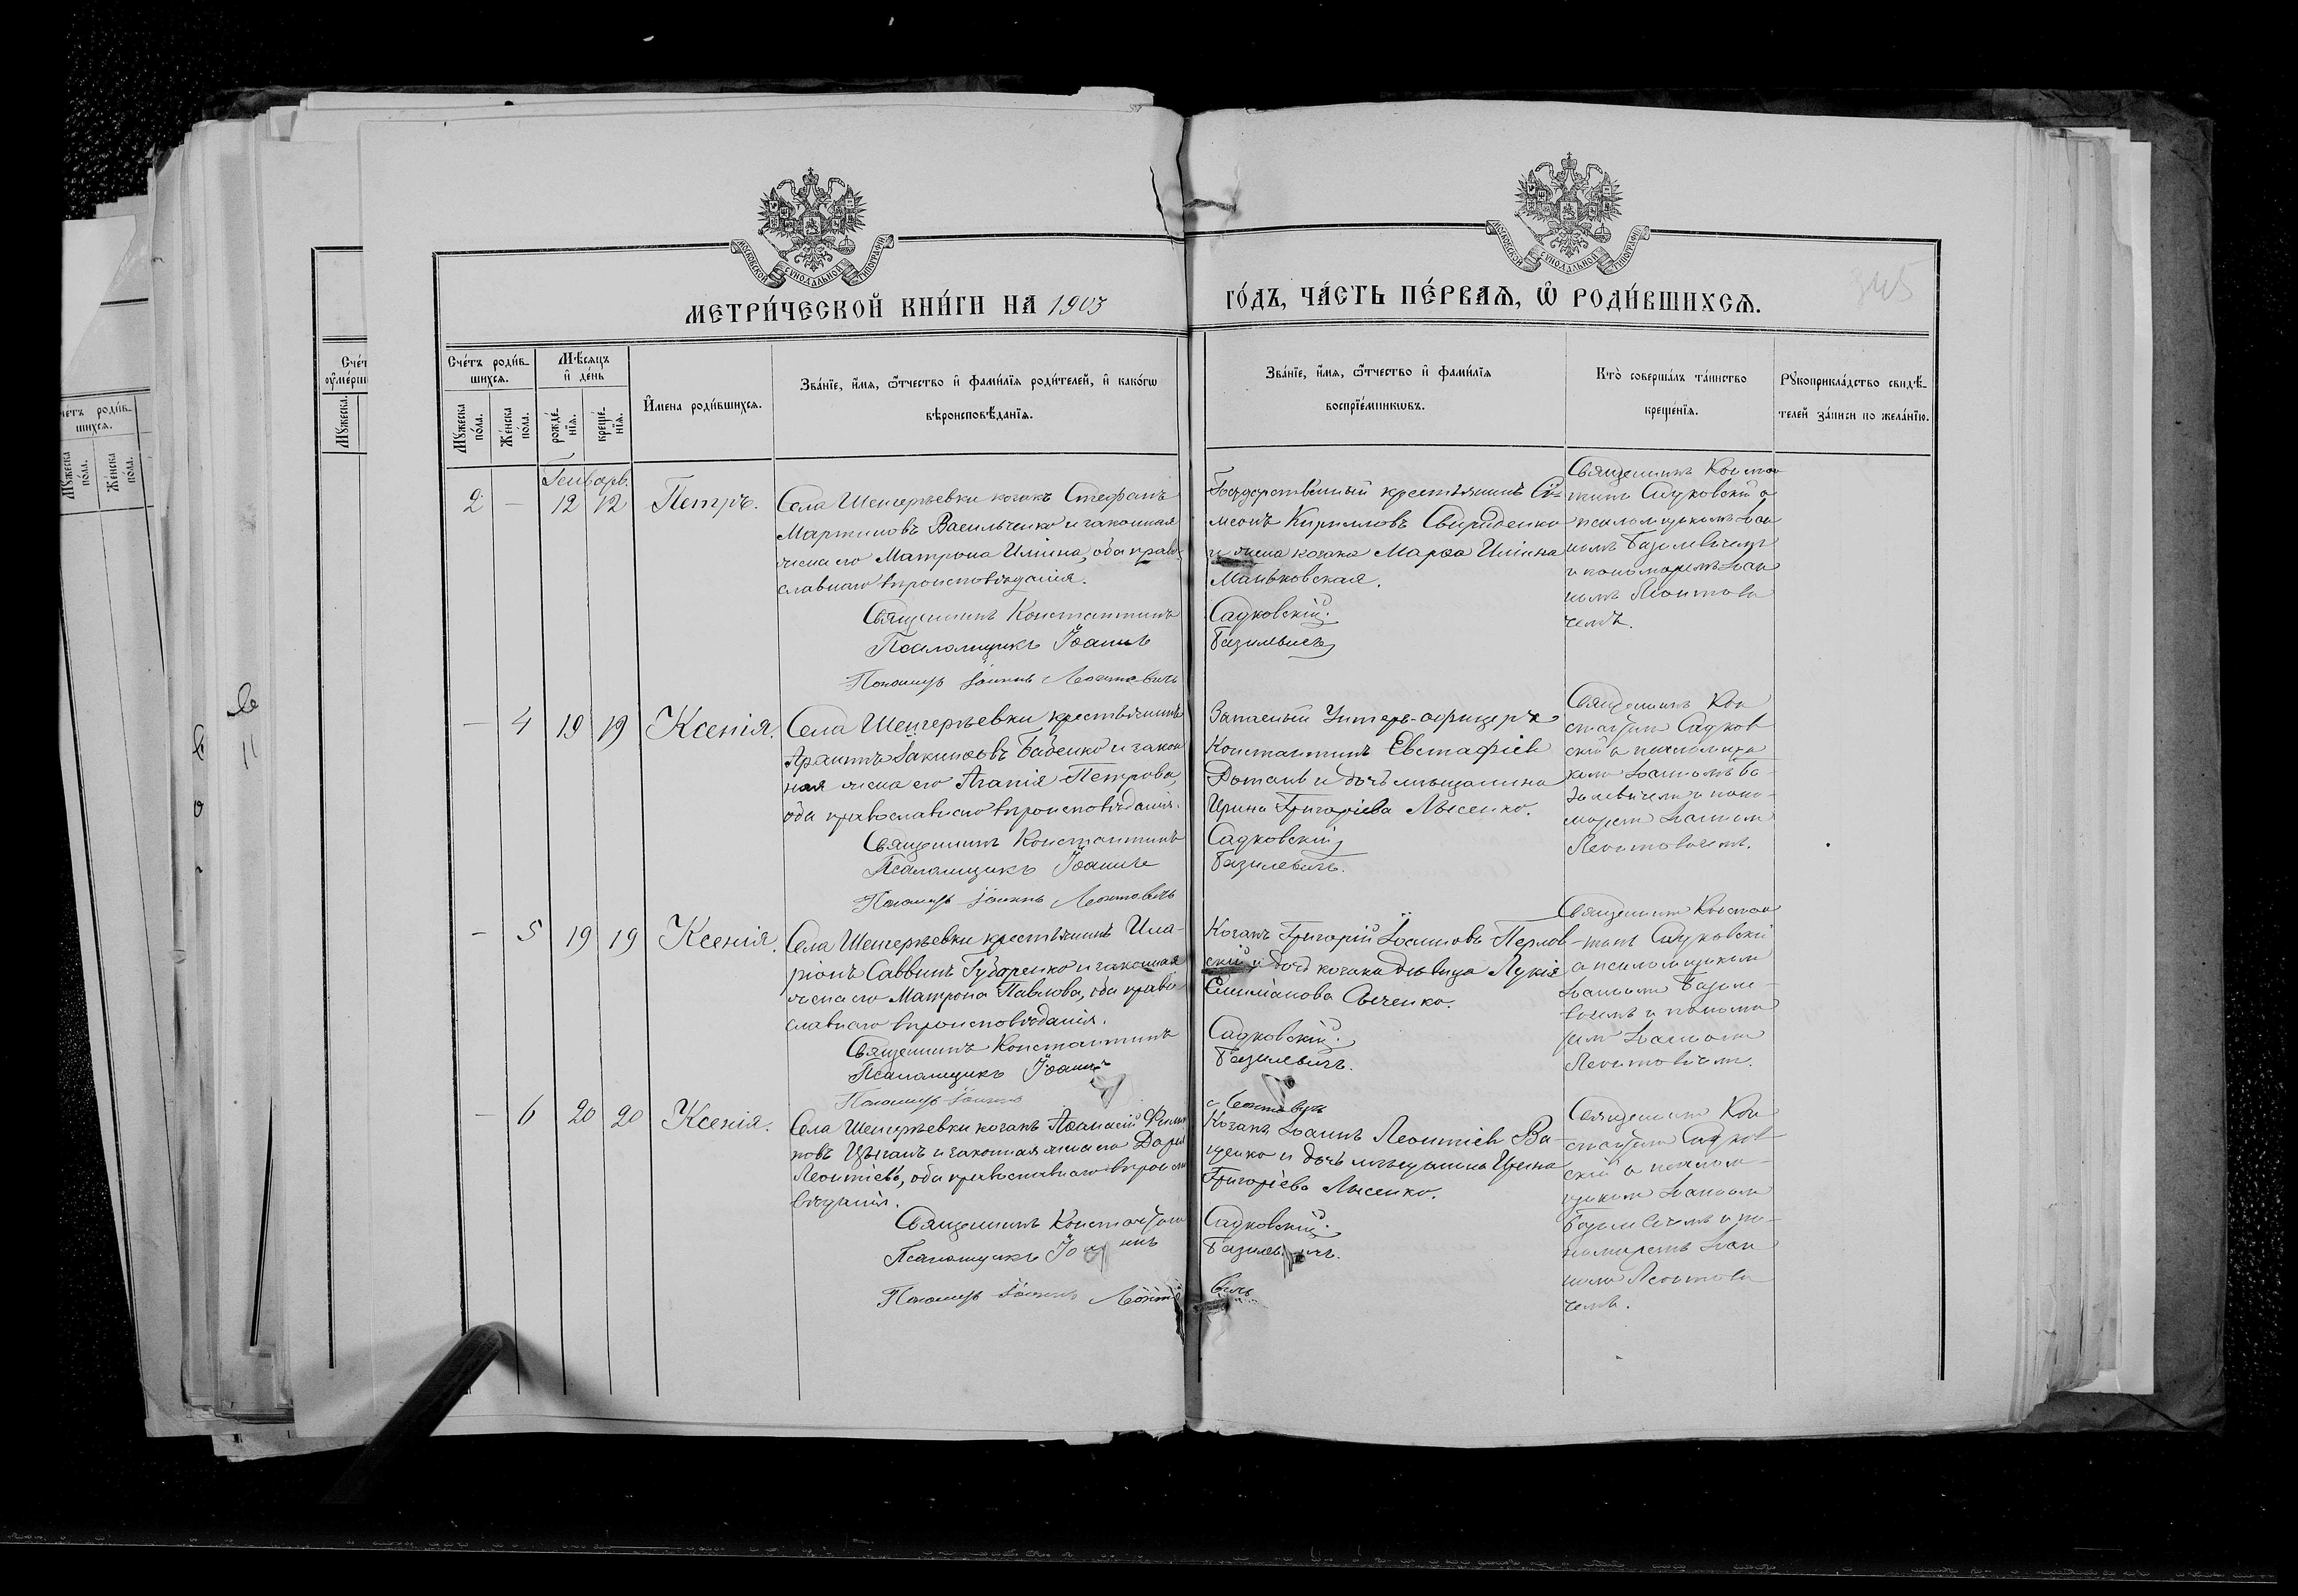 МОСКОВСКОЙ СУНОДАЛЬНОЙ ТИПОГРАФІИ
МОСКОВСКОЙ СУНОДАЛЬНОЙ ТИПОГРАФІИ
МЕТРИ́ЧЕСКОЙ КНИ́ГИ НА 1903
ГО́ДЪ, ЧА́СТЬ ПЕ́РВАѦ, Ѡ҆ РОДИ́ВШИХСѦ.
345
Сче́тъ роди́в-
шихсѧ.
Мѣ́сѧцъ
и҆ де́нь
Мꙋ́жеска по́ла.
Же́нска по́ла.
рожде́-нїѧ.
креще́-нїѧ.
И҆мена роди́вшихсѧ.
Зва́нїе, и҆́мѧ, ѻ҆́тчество и҆ фами́лїѧ роди́телей, и҆ како́гѡ
вѣроисповѣ́данїѧ.
Зва́нїе, и҆́мѧ, ѻ҆́тчество и҆ фами́лїѧ
воспрїе́мникѡвъ.
Кто̀ соверша́лъ та́инство
креще́нїѧ.
Рꙋкоприкла́дство свидѣ́-
телей за́писи по жела́нїю.
Генварь
2 – 12 12 Петръ.
Села Шечерѣевки козакъ Стефанъ
Мартиновъ Васильченко и законная
жена его Матрона Илiина, оба право-
славнаго вѣроисповѣданiя.
Священникъ Константинъ
Псаломщикъ Iоаннъ
Пономарь Iоаннъ Леонтовичъ
Государственный крестьянинъ Си-
меонъ Кирилловъ Свириденко
и жена козака Марѳа Илiина
Маньковская.
Садковскiй.
Базилевичъ
Священникъ Констан
тинъ Садковскiй с
псаломщикомъ Iоан
номъ Базилевичемъ
и пономаремъ Iоан
номъ Леонтови
чемъ.
– 4 19 19 Ксенiя.
крестьянинъ
Бабенко и закон
ная жена его Агапiя Петрова,
оба православнаго вѣроисповѣданiя.
Священникъ Константинъ
Псаломщикъ Iоаннъ
Пономарь Iоаннъ Леонтовичъ
Запасный Унтеръ-офицеръ
Константинъ Евстафiевъ
и дочь мѣщанина
Ирина Григорiева Лысенко.
Садковскiй
Базилевичъ.
Священникъ Кон
стантинъ Садков
скiй с псаломщи
комъ Iоанномъ Ба-
зилевичемъ и поно-
маремъ Iоанномъ
Леонтовичемъ.
– 5 19 19 Ксенiя.
крестьянинъ Ила-
рiонъ Саввинъ Губаренко и законная
жена его Матрона Павлова, оба право
славнаго вѣроисповѣданiя.
Священникъ Константинъ
Псаломщикъ Iоаннъ
Пономарь Iоаннъ
Козакъ Григорiй Iоанновъ Перлов
скiй и дочь козака дѣвица Лукiя
Садковскiй.
Базилевичъ.
Леонтовичъ
Священникъ Констан
тинъ Садковскiй
с псаломщикомъ
Iоанномъ Базиле-
вичемъ и понома
ремъ Iоанномъ
Леонтовичемъ.
– 6 20 20 Ксенiя.
козакъ Аѳанасiй
Цыганъ и законная жена его Дарiя
Леонтiева, оба православнаго вѣроиспо
вѣданiя.
Священникъ Константинъ
Псаломщикъ Iоаннъ
Пономарь Iоаннъ Леонто
Козакъ Iоаннъ Леонтiевъ Ва-
щенко и дочь мѣщанина Ирина
Григорiева Лысенко.
Садковскiй.
Базилевичъ.
вичъ
Священникъ Кон
стантинъ Садков
скiй с псалом-
щикомъ Iоанномъ
Базилевичемъ и по-
номаремъ Iоан
номъ Леонтови
чемъ.